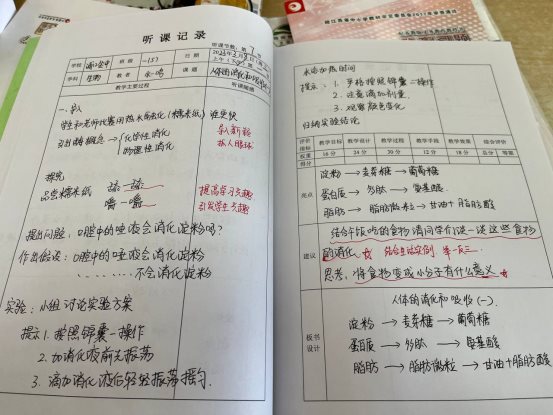 听课记录
听课节数: 第 7 节
学校
班级 151
日期
2023年2月
上午(下午)
学科 生物
教者
课题 人体的消化和吸收
教学主要过程
听课随感
一. 导入
学生和老师代表用热水与消化(糯米纸) 谁更快
引出新概念 → 化学性消化
物理性消化
导入新颖
抓人眼球
探究
品尝糯米纸 舔一舔
嚼一嚼
提高学习兴趣
引发学生兴趣
提出问题: 口腔中的唾液会消化淀粉吗?
作出假设: 口腔中的唾液会消化淀粉
不会消化淀粉
实验: 小组讨论实验方案
提示 1. 按照锦囊一操作
2. 加消化液前先振荡
3. 滴加消化液后轻轻振荡摇匀.
水浴加热时间
提示: 1. 严格按照锦囊二操作
2. 注意滴加剂量.
3. 观察颜色变化
归纳实验结论
评价指标 教学目标 教学设计 教学过程 教学手段 教学效果 综合评价
权重 16分 24分 30分 12分 18分 总分 等第
得分
亮点
淀粉 → 麦芽糖 → 葡萄糖
蛋白质 → 多肽 → 氨基酸
脂肪 → 脂肪微粒 → 甘油+脂肪酸
建议
结合午饭吃的食物 请同学们说一说这些食物
的消化 结合生活实例, 举一反三.
思考: 将食物变成小分子有什么意义
板书设计
人体的消化和吸收 (一).
淀粉 → 麦芽糖 → 葡萄糖
蛋白质 → 多肽 → 氨基酸
脂肪 → 脂肪微粒 → 甘油+脂肪酸